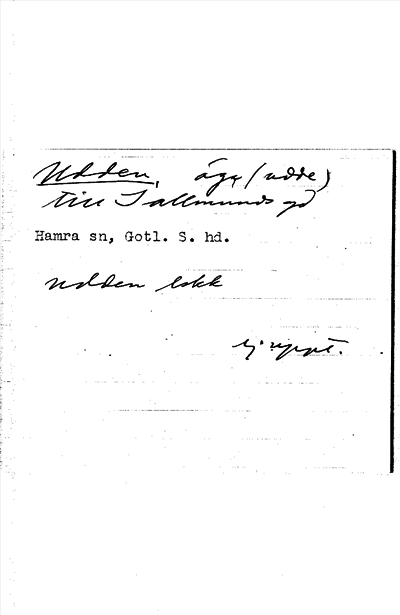 Udden, äga (udde)
till Sallmunds gd
Hamra sn, Gotl. S. hd.
Udden lokk
ej uppt.